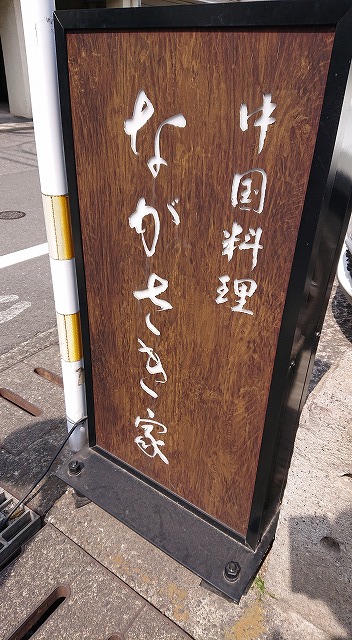 中国料理
ながさき家